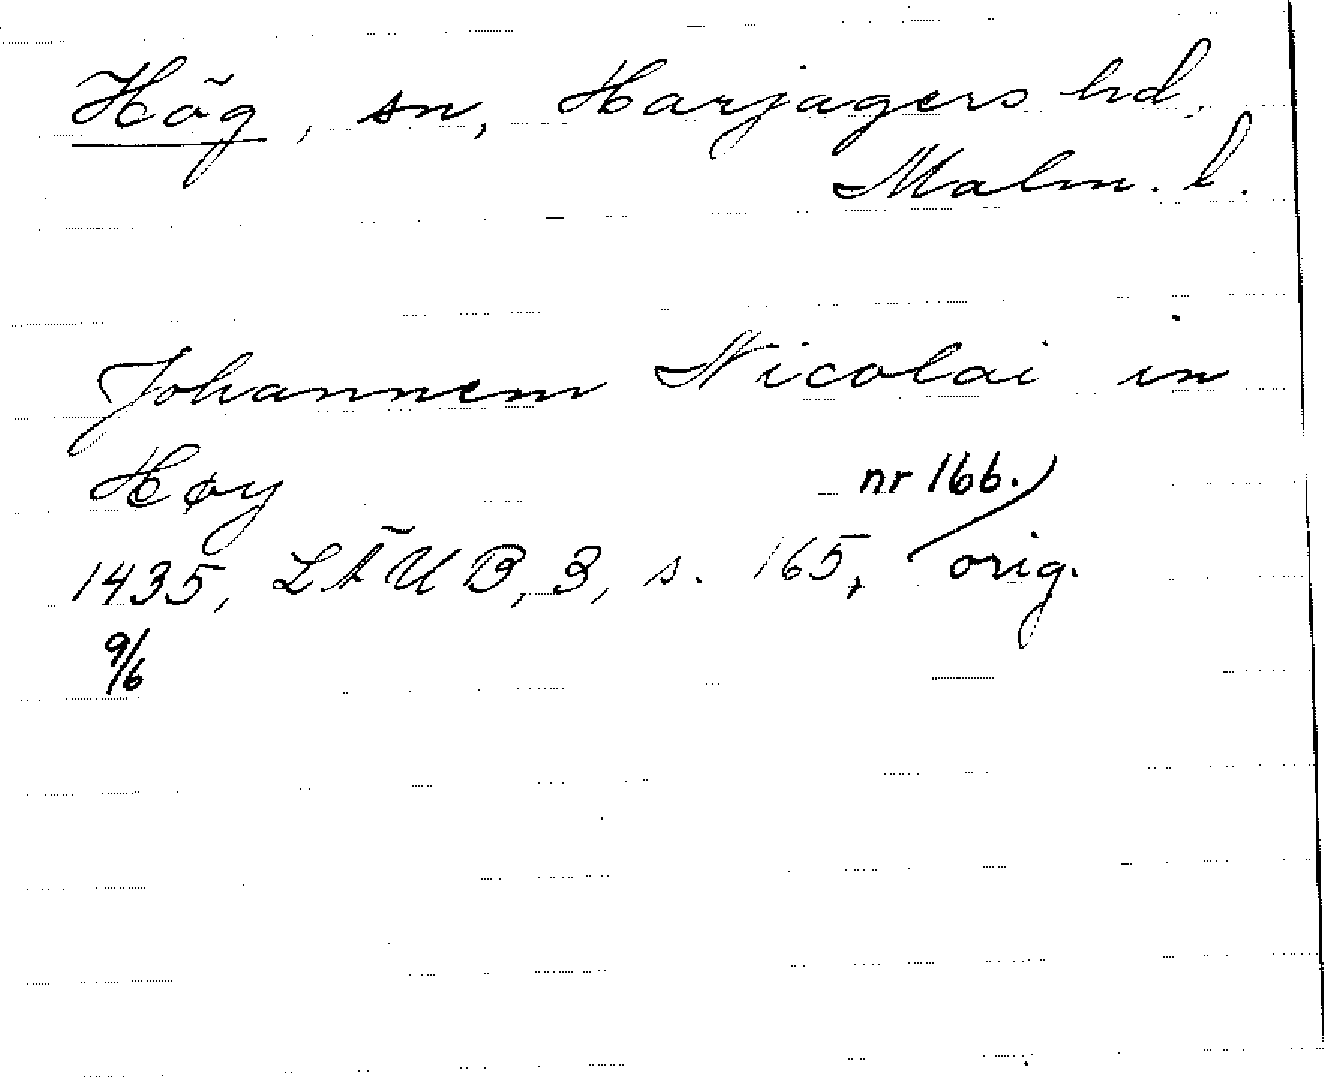 Hög, sn, Harjagers hd,
Malm. l.
Johannem Nicolai in
Høy
nr 166.
1435, LÄUB, 3, s. 165, orig.
9/6